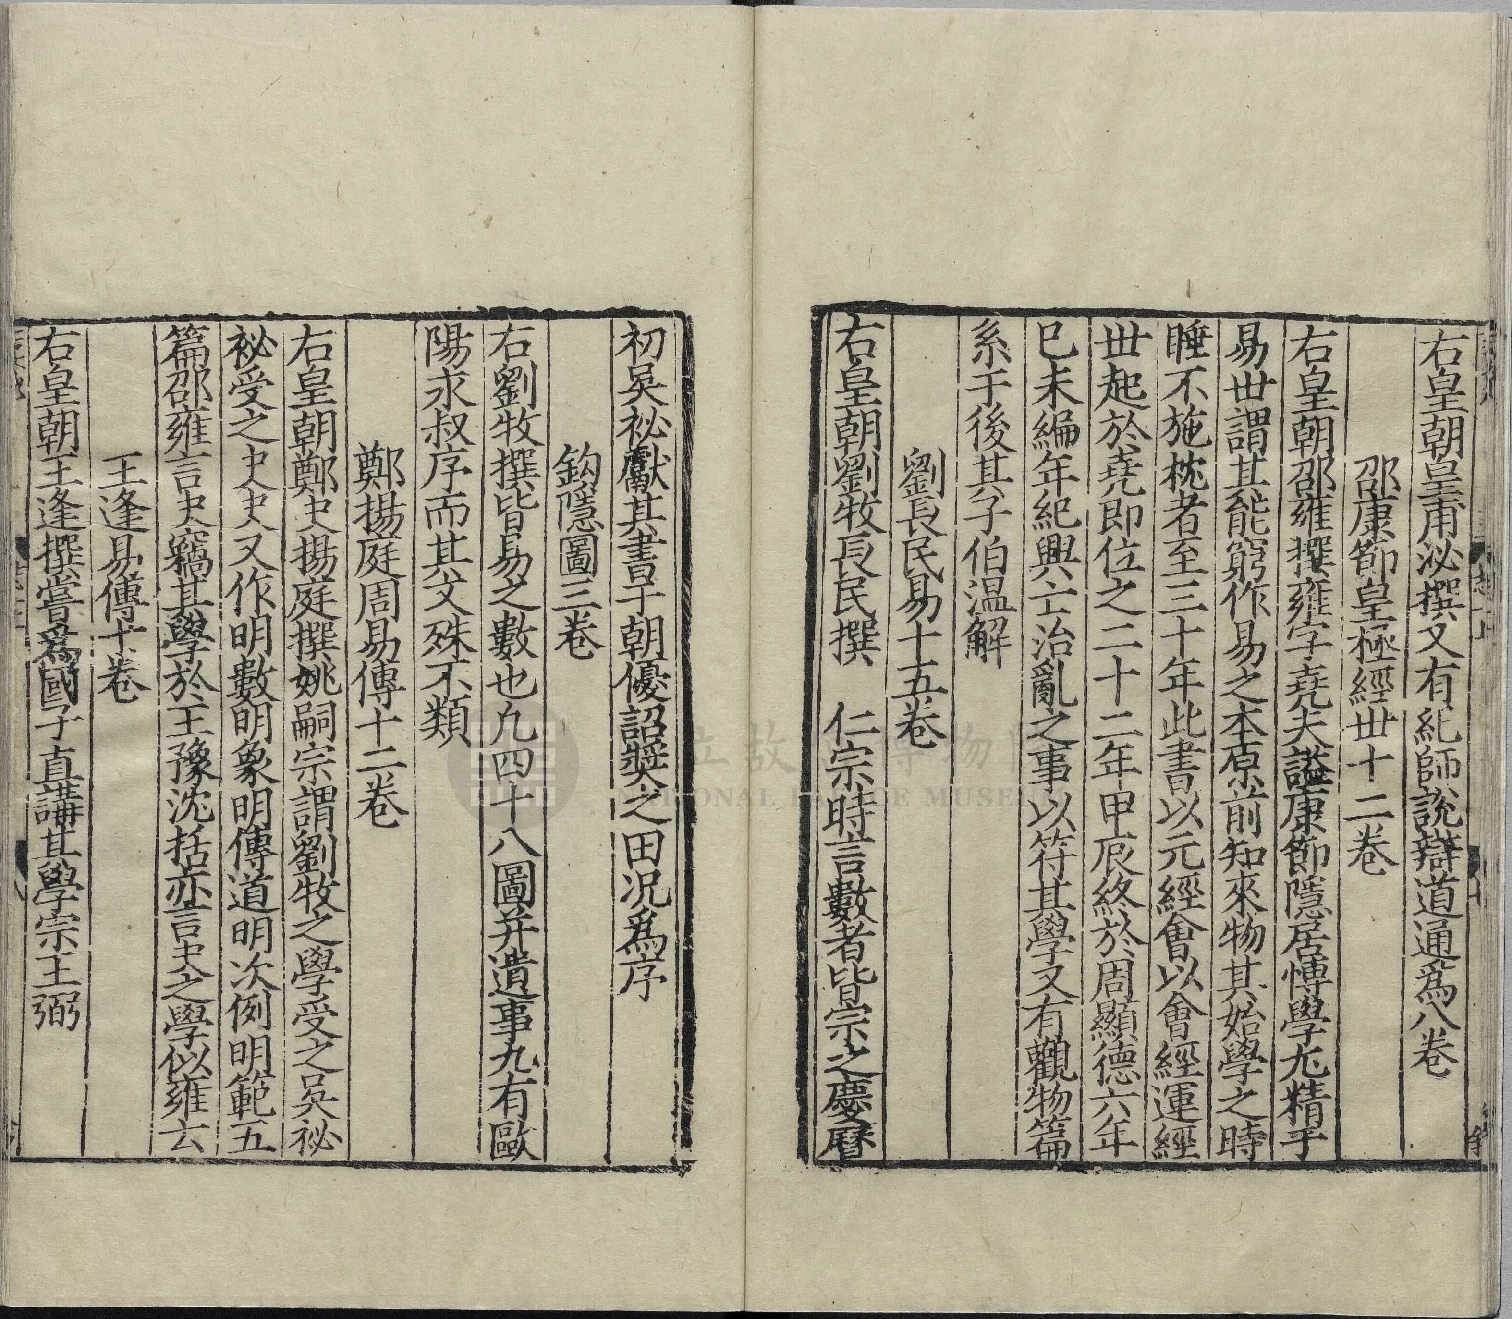 右皇朝皇甫泌撰又有紀師說辯道通爲八卷
邵康節皇極經丗十二卷
右皇朝邵雍撰雍字堯夫謚康節隱居博學尤精于
易丗謂其能窮作易之本原前知來物其始學之時
睡不施枕者至三十年此書以元經會以會經運經
丗起於堯即位之二十二年甲辰終於周顯德六年
巳未編年紀興亡治亂之事以符其學又有觀物篇
系于後其子伯溫解
劉長民易十五卷
右皇朝劉牧長民撰　仁宗時言數者皆宗之慶曆
初吳祕獻其書于朝優詔奬之田况爲序
鈎隱圖三卷
右劉牧撰皆易之數也凢四十八圖并遺事九有歐
陽永叔序而其文殊不類
鄭揚庭周易傳十二卷
右皇朝鄭夬揚庭撰姚嗣宗謂劉牧之學受之吳祕
祕受之夬夬又作明數明象明傳道明次例明範五
篇邵雍言夬竊其學於王豫沈括亦言夬之學似雍云
王逢易傳十卷
右皇朝王逢撰嘗爲國子直講其學宗王弼
國立故宮博物院
NATIONAL PALACE MUSEUM